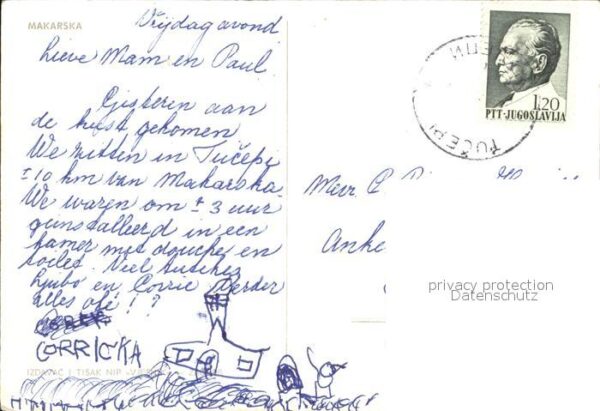 MAKARSKA
Vrijdag avond
Lieve Mam en Paul.
Gisteren aan
de kust gekomen
We zitten in Tučepi
± 10 km van Makarska.
We waren om ± 3 uur
geinstalleerd in een
kamer met douche en
toilet. Veel
Ljubo en Corrie Verder
alles olé! ?
CORRICKA
IZDAVAČ I TISAK NIP
1.20
PTT-JUGOSLAVIJA
TUČEPI
Mevr. C
Anke
privacy protection
Datenschutz